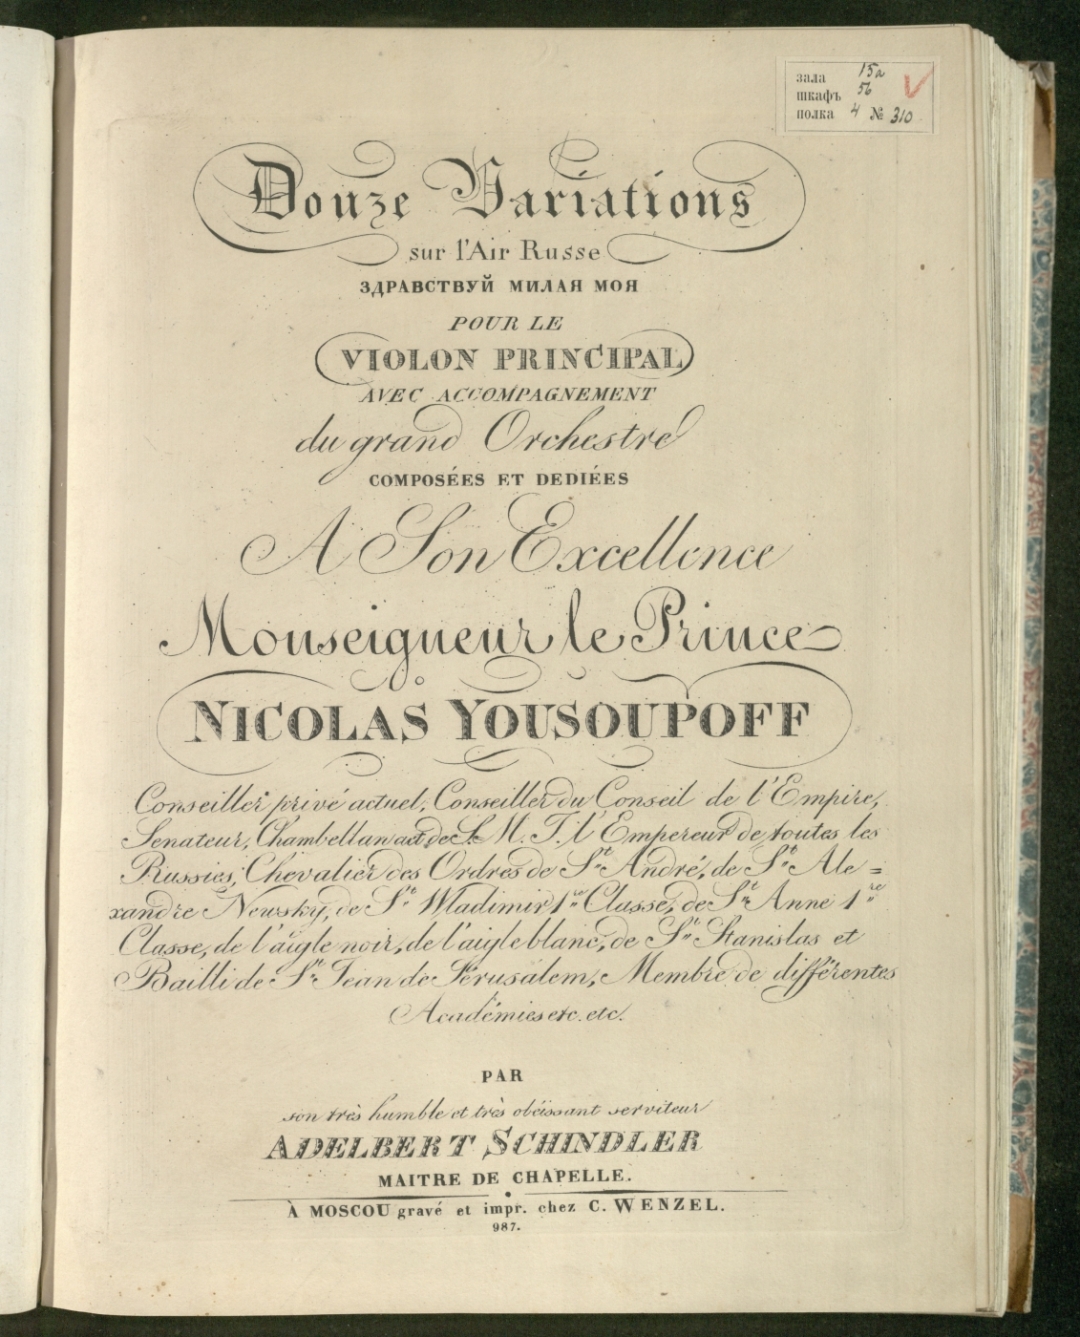 зала 15а
шкафъ 56
полка 4 № 310
Douze Variations
sur l'Air Russe
ЗДРАВСТВУЙ МИЛАЯ МОЯ
POUR LE
VIOLON PRINCIPAL
AVEC ACCOMPAGNEMENT
du grand Orchestre
COMPOSÉES ET DEDIÉES
A Son Excellence
Monseigneur le Prince
NICOLAS YOUSOUPOFF
Conseiller privé actuel, Conseiller du Conseil de l'Empire,
Senateur, Chambellan act. de S. M. I. l'Empereur de toutes les
Russies, Chevalier des Ordres de St. André, de St. Ale=
xandre Newsky, de St. Wladimir 1re Classe, de St. Anne 1re
Classe, de l'aigle noir, de l'aigle blanc, de St. Stanislas et
Bailli de St. Jean de Jérusalem, Membre de différentes
Académies etc. etc.
PAR
son très humble et très obéissant serviteur
ADELBERT SCHINDLER
MAITRE DE CHAPELLE.
À MOSCOU gravé et impr. chez C. WENZEL.
987.